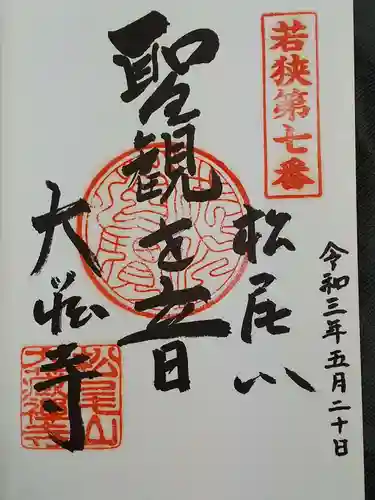 若狭第七番
令和三年五月二十日
松尾山
聖観世音
大 寺
松尾山